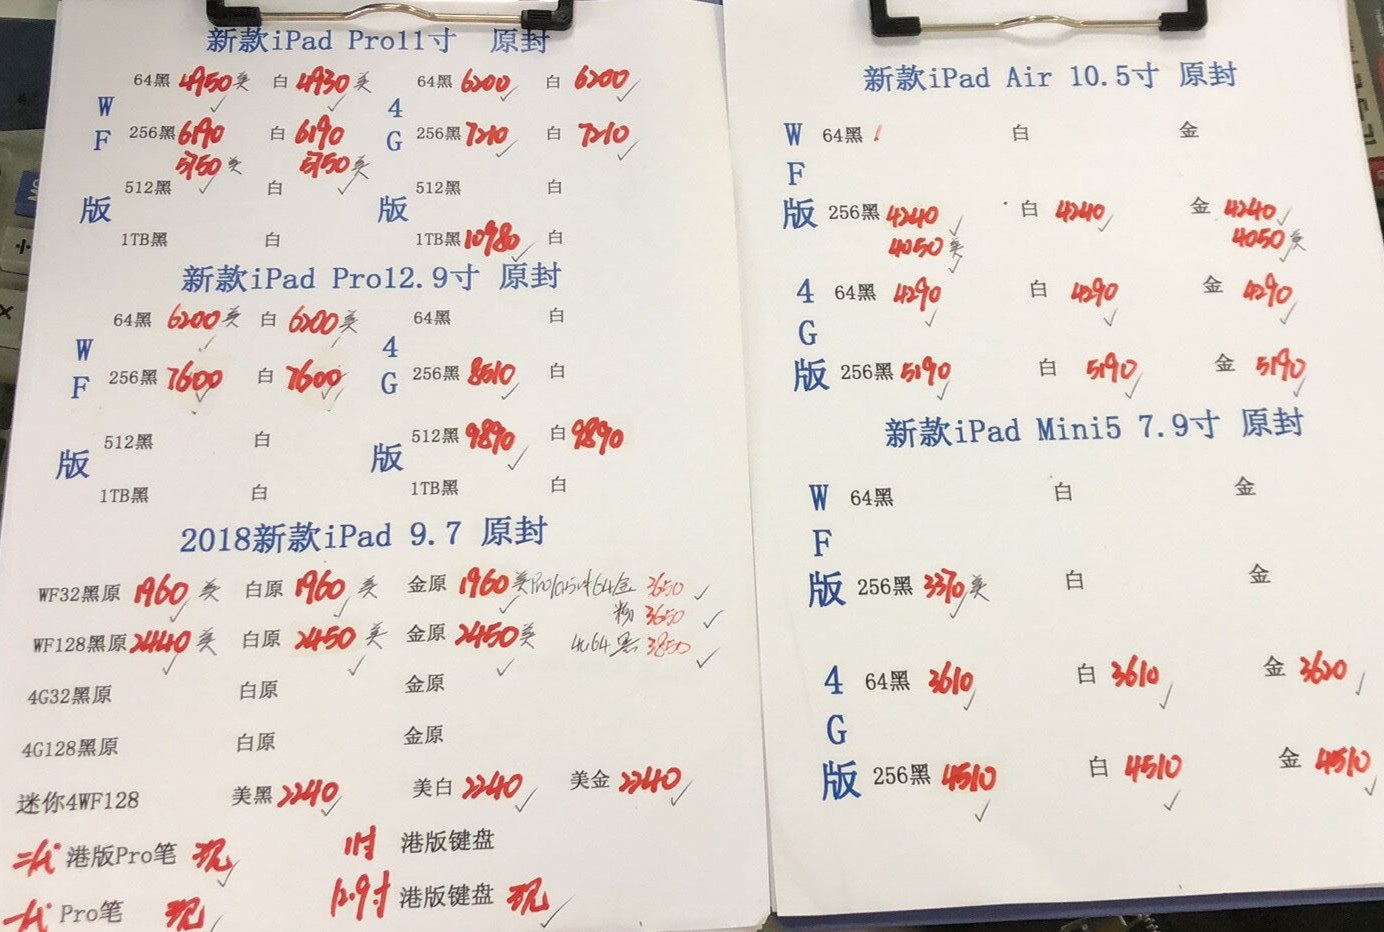 新款iPad Pro11寸 原封
WF版
64黑 4950美 白 4930美
256黑 6190 白 6190
5750美 5750美
512黑 白
1TB黑 白
4G版
64黑 6200 白 6200
256黑 7210 白 7210
512黑 白
1TB黑 10980 白
新款iPad Pro12.9寸 原封
WF版
64黑 6200美 白 6200美
256黑 7600 白 7600
512黑 白
1TB黑 白
4G版
64黑 白
256黑 8510 白
512黑 9890 白 9890
1TB黑 白
2018新款iPad 9.7 原封
WF32黑原 1960美 白原 1960美 金原 1960美 Pro10.5寸64金 3650
粉 3650
WF128黑原 2440美 白原 2450美 金原 2450美 4G64黑 3850
4G32黑原 白原 金原
4G128黑原 白原 金原
迷你4WF128 美黑 2240 美白 2240 美金 2240
二代 港版Pro笔 现 11寸 港版键盘
一代 Pro笔 现 12.9寸 港版键盘 现
新款iPad Air 10.5寸 原封
WF版
64黑 白 金
256黑 4240 白 4240 金 4240
4050美 4050美
4G版
64黑 4290 白 4290 金 4290
256黑 5190 白 5190 金 5190
新款iPad Mini5 7.9寸 原封
WF版
64黑 白 金
256黑 3370美 白 金
4G版
64黑 3610 白 3610 金 3620
256黑 4510 白 4510 金 4510